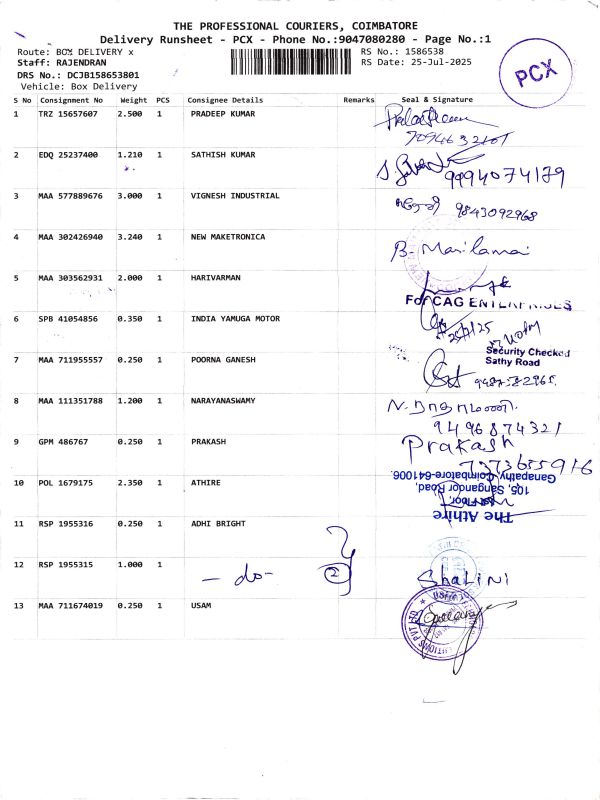 THE PROFESSIONAL COURIERS, COIMBATORE
Delivery Runsheet - PCX - Phone No.:9047080280 - Page No.:1
Route: BOX DELIVERY x
RS No.: 1586538
Staff: RAJENDRAN
RS Date: 25-Jul-2025
DRS No.: DCJB158653801
Vehicle: Box Delivery
PCX
S No Consignment No Weight PCS Consignee Details Remarks Seal & Signature
1 TRZ 15657607 2.500 1 PRADEEP KUMAR
2 EDQ 25237400 1.210 1 SATHISH KUMAR
9994074179
3 MAA 577889676 3.000 1 VIGNESH INDUSTRIAL
9843092968
4 MAA 302426940 3.240 1 NEW MAKETRONICA
5 MAA 303562931 2.000 1 HARIVARMAN
For CAG ENTERPRISES
6 SPB 41054856 0.350 1 INDIA YAMUGA MOTOR
Security Checked
Sathy Road
7 MAA 711955557 0.250 1 POORNA GANESH
8 MAA 111351788 1.200 1 NARAYANASWAMY
9496874321
9 GPM 486767 0.250 1 PRAKASH Prakash
7373655916
10 POL 1679175 2.350 1 ATHIRE
The Athire
105, Sanganoor Road,
Ganapathy, Coimbatore-641006.
11 RSP 1955316 0.250 1 ADHI BRIGHT
12 RSP 1955315 1.000 1 - do - 2 Shalini
13 MAA 711674019 0.250 1 USAM